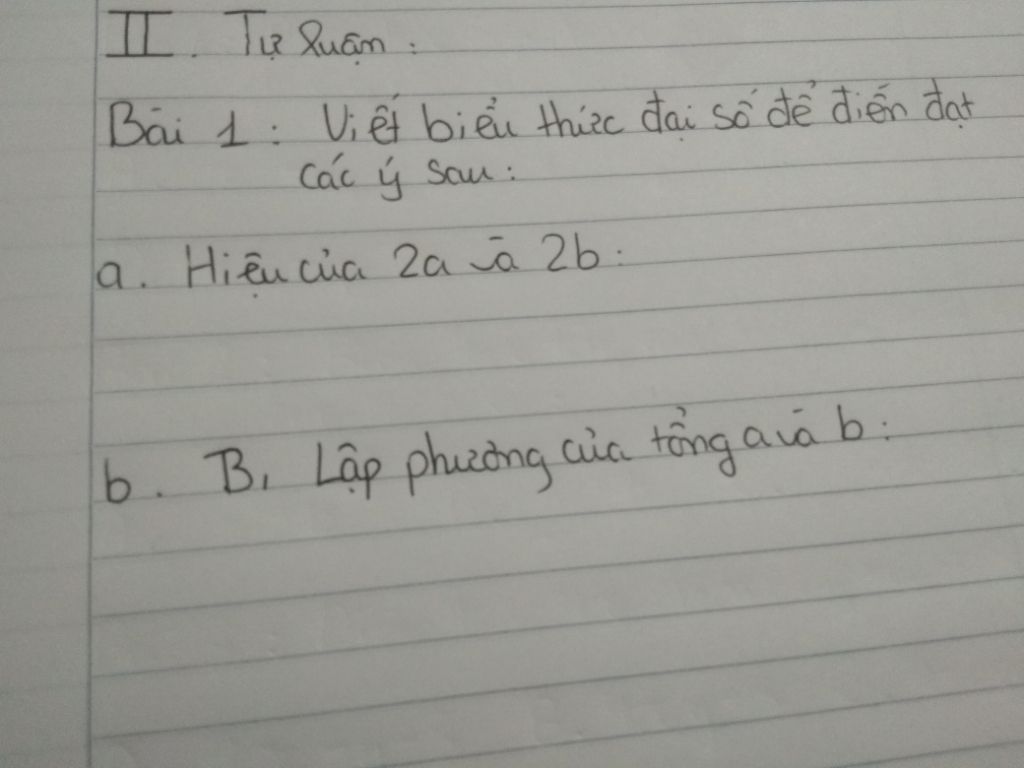 II. Tự Luận :
Bài 1 : Viết biểu thức đại số để diễn đạt
các ý sau :
a. Hiệu của 2a và 2b :
b. B, Lập phương của tổng a và b :